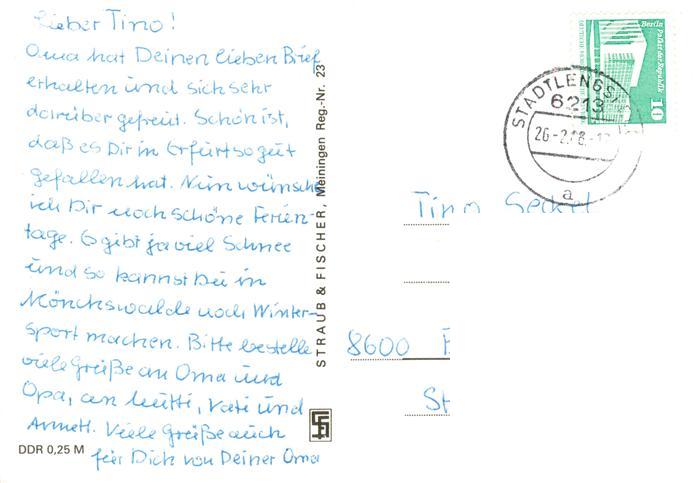 Lieber Tino!
Oma hat Deinen lieben Brief
erhalten und sich sehr
darüber gefreut. Schön ist,
daß es Dir in Erfurt so gut
gefallen hat. Nun wünsche
ich Dir noch schöne Ferien-
tage. Es gibt ja viel Schnee
und so kannst Du in
Mönchswalde noch Winter-
sport machen. Bitte bestelle
viele Grüße an Oma und
Opa, an Mutti, Vati und
Annett. Viele Grüße auch
für Dich von Deiner Oma
DDR 0,25 M
STRAUB & FISCHER, Meiningen Reg.-Nr. 23
STADTLENGSF
6213
a
Berlin
Palast der Republik
10
Tino
8600